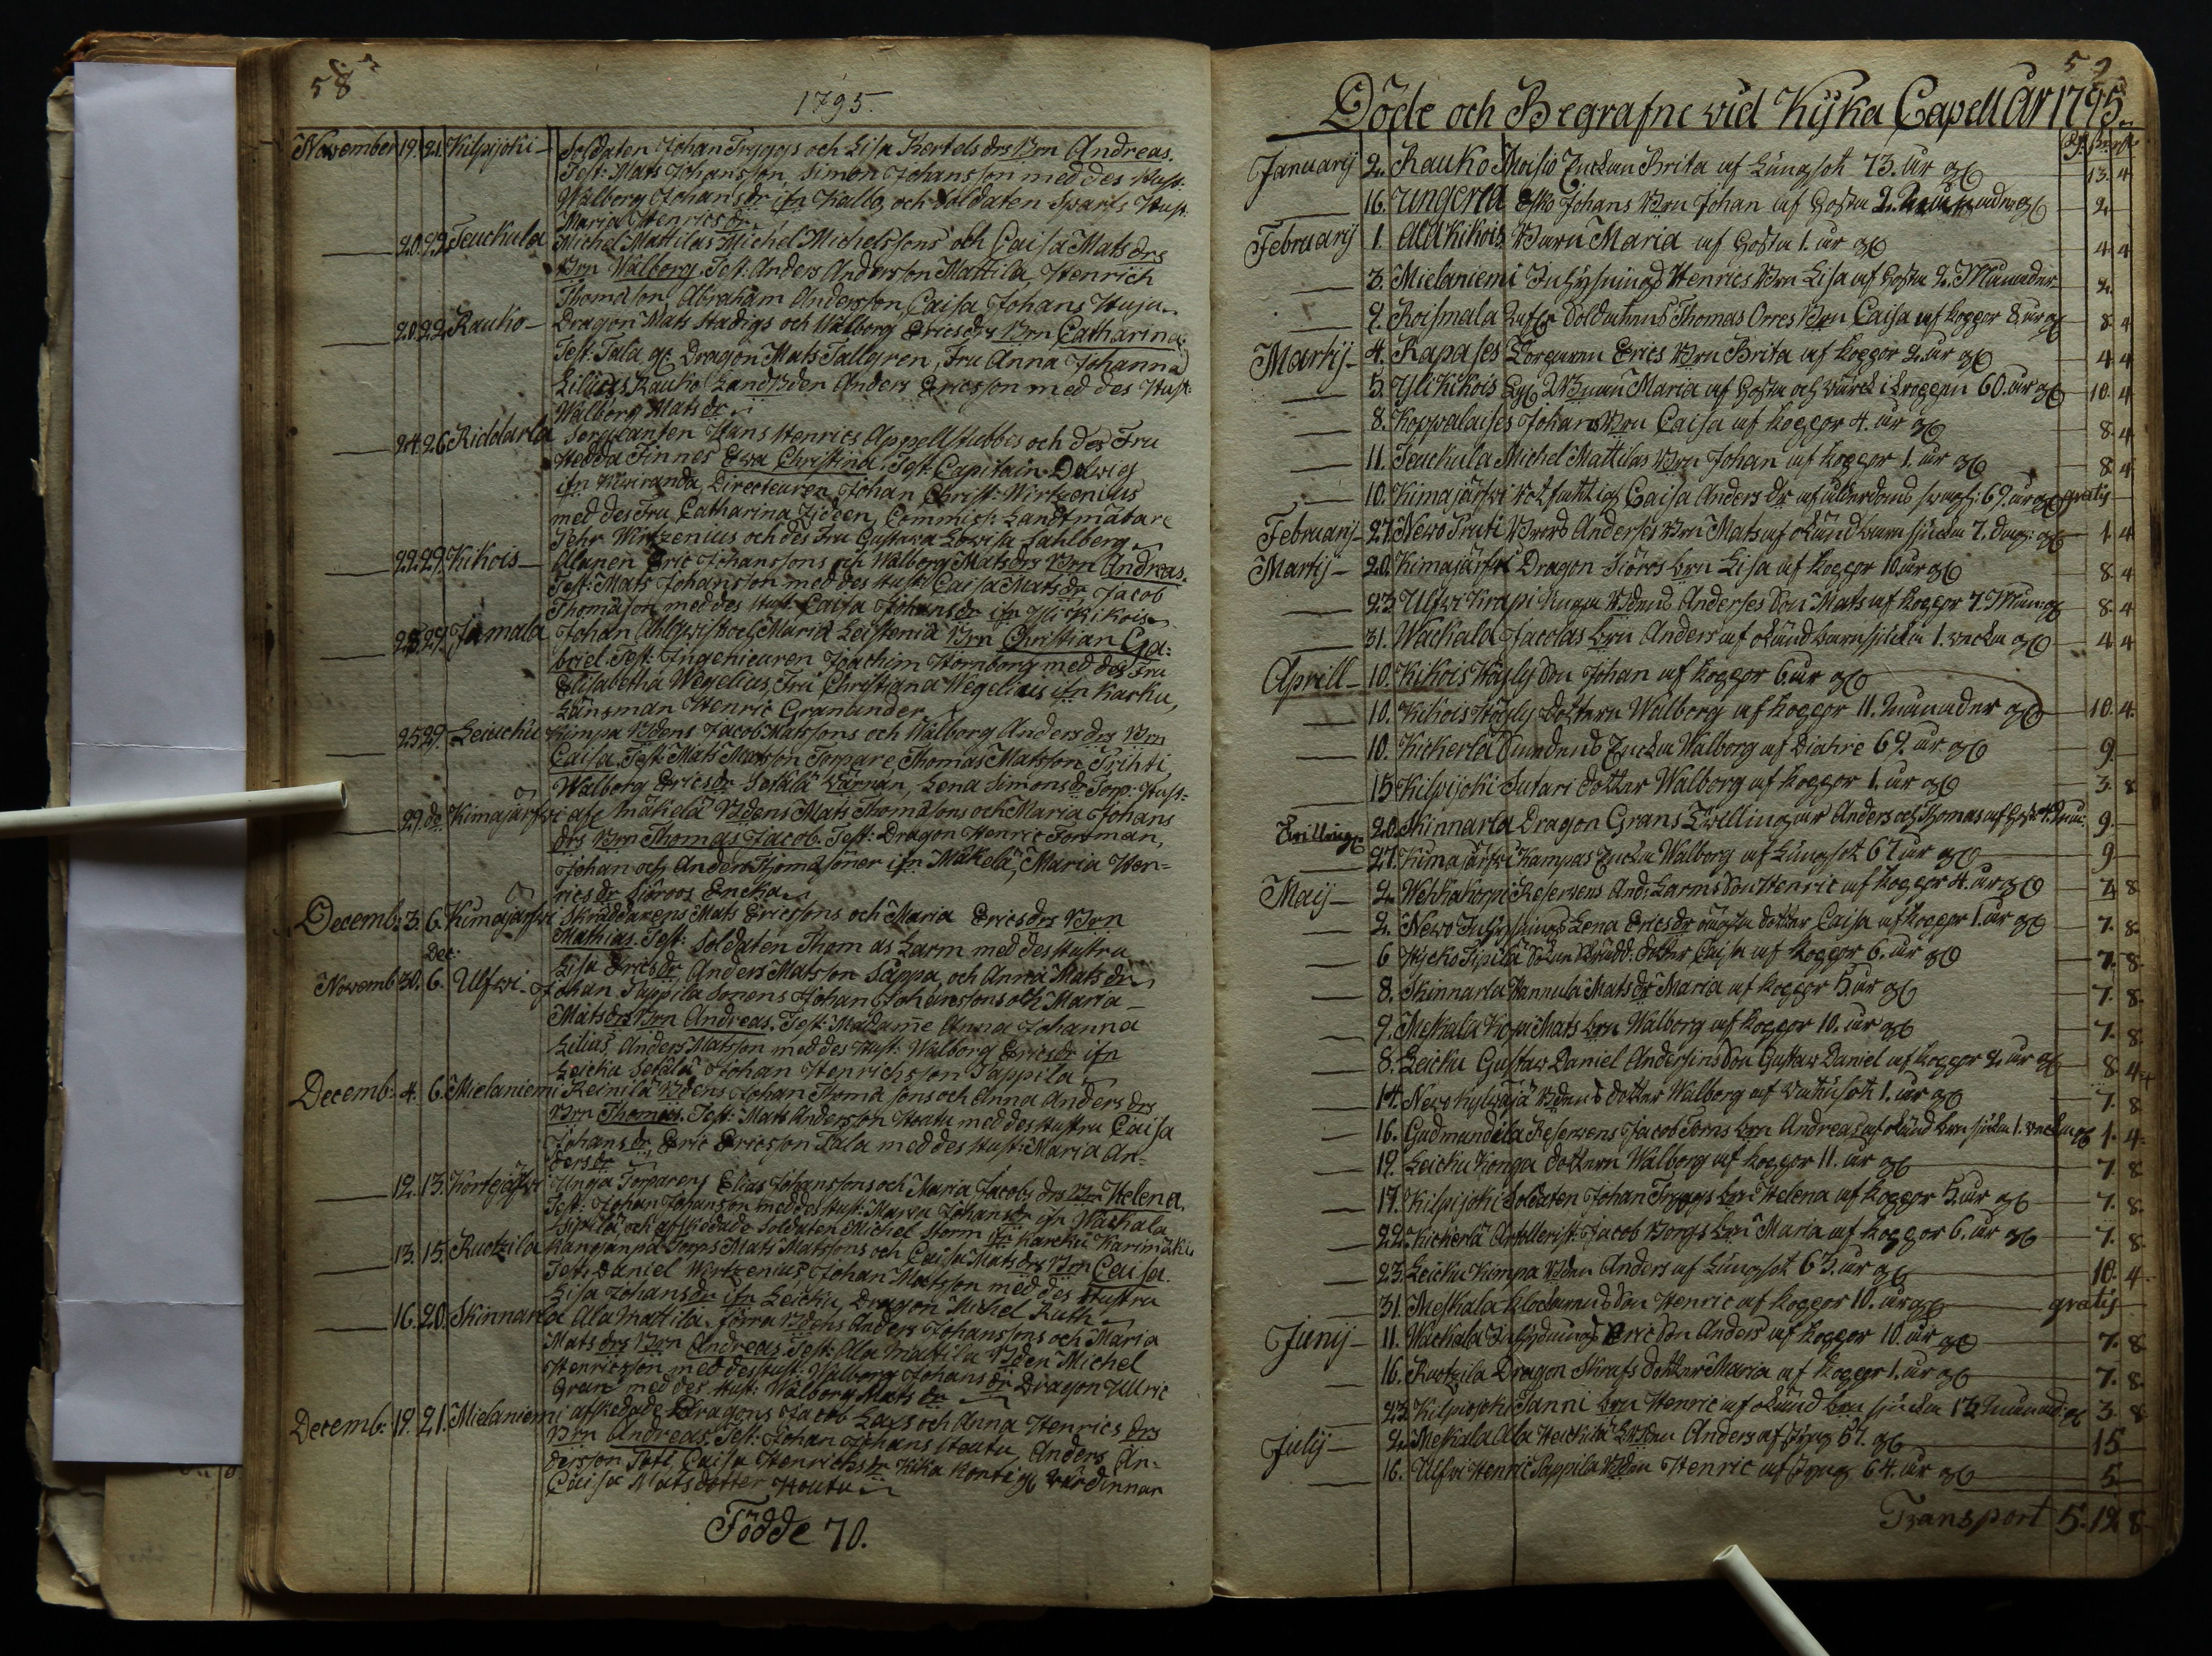 58
1795.
November 19. 21. Kilpijoki - Soldaten Johan Tryggs och Lisa Bertels drs Brn Andreas.
Test: Mats Johansson, Simon Johansson med des Hust:
Walborg Johans dr ifn Kallo, och Soldaten Swarts Hust.
Maria Henrics dr.
20. 22. Teuckula Michel Mattilas Michel Michelssons och Caisa Mats drs
Brn Walborg. Test: Anders Andersson Mattila, Henrich
Thomasson, Abraham Andersson, Caisa Johans
20. 22. Rauko - Dragon Mats Stadigs och Walborg Erics drs Brn Catharina.
Test: Dragon Mats Tallgren, Fru Anna Johanna
Lilius, Rauko Landbden Anders Ericsson med des Hust:
Walborg Mats dr
24. 26. Riddarla Hans Henrics och des Fru
Hedda Finnes Ewa Christina, Test: Capitain Delwig
ifn, Directeuren Johan Christ: Wirtzenius
med des Fru Catharina Zideen, Commiss: Landtmätare
Fehr Wirtzenius och des Fru Gustava Lowisa Sahlberg
22. 29. Kikois - Alanen Eric Johanssons och Walborg Mats drs Brn Andreas.
Test: Mats Johansson med des Hust: Caisa Mats dr Jacob
Thomasson med des Hust: Caisa Johans dr ifn Yli Kikois
28. 29. Jamala Johan Ahlqwist och Maria Leistenia Brn Christian Ga:
briel. Test: Ingenieuren Joachim Hornborg med des Fru
Elisabetha Wegelius, Fru Christiana Wegelius ifn Karku,
Länsman Henric Granander
25. 29. Leiuchu Kimpa Bdens Jacob Matssons och Walborg Anders drs Brn
Caisa. Test: Mats Matsson Torpare Thomas Matsson Prihti
Walborg Erics dr Setälä, Lena Simons dr Torp: Hust:
29. do Kimajärfwi Mäkelä Bdens Mats Thomassons och Maria Johans
drs Brn Thomas Jacob. Test: Dragon Henric Forsman,
Johan och Anders Thomæ Söner ifn Mäkelä, Maria Hen=
rics dr Siöroos Encka
Decemb: 3. 6. Kimajärfwi Skräddarens Mats Ericssons och Maria Erics drs Brn
Mathias. Test: Soldaten Thomas Larm med des Hustru
Dec:
Lisa Erics dr, Anders Matsson Säppa, och Anna Mats dr
Novemb 30. 6. Ulfwi - Johan Pappila Sonens Johan Johanssons och Maria
Mats drs Brn Andreas. Test: Madame Anna Johanna
Lilius, Anders Matsson med des Hust: Walborg Erics dr ifn
Leicku Setälä Johan Henrichsson Pappila
Decemb: 4. 6. Mielaniemi Reinilä Bdens Johan Thomæ sons och Anna Anders drs
Brn Thomas. Test: Mats Andersson Houtu med des Hustru Caisa
Johans dr, Eric Ericsson Tala med des Hust: Maria An=
ders dr
12. 13. Kortejärfwi Unga Torparens Elias Johanssons och Maria Jacobs drs Brn Helena.
Test: Johan Johansson med des Hust: Maria Johans dr ifn Wackala
Sipilä, och afskedade Soldaten Michel Storm ifn Karcku Karimäki
13. 15. Ruotzila Kanganpä Torps Mats Matssons och Caisa Mats drs Brn Caisa.
Test: Daniel Wirtzenius, Johan Matsson med des Hustru
Lisa Johans dr ifn Leicku, Dragon Michel Ruth
16. 20. Skinnarla Ala Mattila, förra Bdens Anders Johanssons och Maria
Mats drs Brn Andreas. Test: Ala Mattila Bden Michel
Henricsson med des Hust: Walborg Johans dr Dragon Ulric
Gran med des Hust: Walborg Mats dr
Decemb: 19. 21. Mielaniemi afskedade Dragons Jacob Laxs och Anna Henrics drs
Brn Andreas. Test: Johan Johans Houtu Anders An=
dersson Pati, Caisa Henrichs dr Kika Kontigs wärdinnan
Caisa Matsdotter Houtu
Födde 70.
59
Döde och Begrafne wid Kijka Capell År 1795.
Januarij 2. Rauko Moisio Enckan Brita af Lungsot 73. år gl 13. 4
16. Ungerla Esko Johans Brn Johan af Hosta 2. Månader gl 2.
Februarij 1. Ala Kikois Barn Maria af Hosta 1. år gl 4 4
3. Mielaniemi Inhysnings Henrics Brn Lisa af Hosta 2. Månader 2.
9. Roismala Soldatens Thomas Orres Brn Caisa af koppor 8. år gl 8 4
Martij - 4. Rapases Torparen Erics Brn Brita af koppor 2. år gl 4 4
5. Yli Kikois Maria af Hosta och wärck i kroppen 60. år gl 10. 4
8. Koppalaises Johans Brn Caisa af koppor 4. år gl 8 4
11. Teuckula Michel Mattilas Brn Johan af koppor 1. år gl 8 4
10. Kimajärfwi Caisa Anders dr af ålderdoms 69. år gl gratis
Februarij 27. Newo Pruti Anderses Brn Mats af okänd barnsjuka 7. dag: gl 1 4
Martij - 20. Kimajärfwi Dragon Siöros brn Lisa af koppor 10. år gl 8 4
23. Ulfwi Krapi Anderses Son Mats af koppor 7. Mån: gl 8 4
31. Wackala Jacolas brn Anders af okänd barnsjuka 1. wecka gl 4 4
Aprill - 10. Kikois Högly Son Johan af koppor 6. år gl
10. Kikois Högly dottern Walborg af koppor 11. månader gl 10. 4.
10. Kickerla Encka Walborg af Diahre 69. år gl 9.
15 Kilpijoki Sutari dotter Walborg af koppor 1. år gl 3. 8
Twillingr 20. Skinnarla Dragon Grans Twillingar Anders och Thomas af 9.
27. Kimajärfwi Kampas Encka Walborg af Lungsot 67 år gl 9
Maij - 2. Wehkakorpi Reserwens And: Larms Son Henric af koppor 4. år gl 7. 8
2. Newo Inhysnings Lena Erics dr oägta dotter Caisa af koppor 1. år gl 7. 8.
6 Hycko Sipilä dotter Caisa af koppor 6. år gl 7. 8.
8. Skinnarla Hannula Mats dr Maria af koppor 5. år gl 7. 8.
9. Meskala Kopi Mats brn Walborg af koppor 10. år gl 7. 8.
8. Leicku Gustaw Daniel Andersins Son Gustaw Daniel af koppor 2. år gl 8 4
14. Newo Kylänpä Bdens dotter Walborg af 1. år gl 7. 8
16. Gudmundila Reserwens Jacob Torns brn Andreas af okänd barnsjuka 1. wecka gl 1. 4.
19. Leicku Konga dottern Walborg af koppor 11. år gl 7. 8
17. Kilpijoki Soldaten Johan Tryggs brn Helena af koppor 5. år gl 7. 8.
22. Kickerla Artollerist: Jacob Borgs brn Maria af koppor 6. år gl 7. 8.
23. Leicku Kimpa Bden Anders af Lungsot 63. år gl 10. 4.
31. Meskala Klockarens Son Henric af koppor 10. år gl gratis
Junij - 11. Wackala Eric Son Anders af koppor 10. år gl 7. 8
16. Ruotzila Dragon Skrafs dotter Maria af koppor 1. år gl 7. 8.
23. Kilpijoki Panni brn Henric af okänd brn sjuka 13 månad: gl 3. 8
Julij - 2. Meskala Ala Heickilä Anders af styng 67. gl 15
16. Ulfwi Henric Pappila Bden Henric af styng 64. år gl 5
Transport 5. 12 8